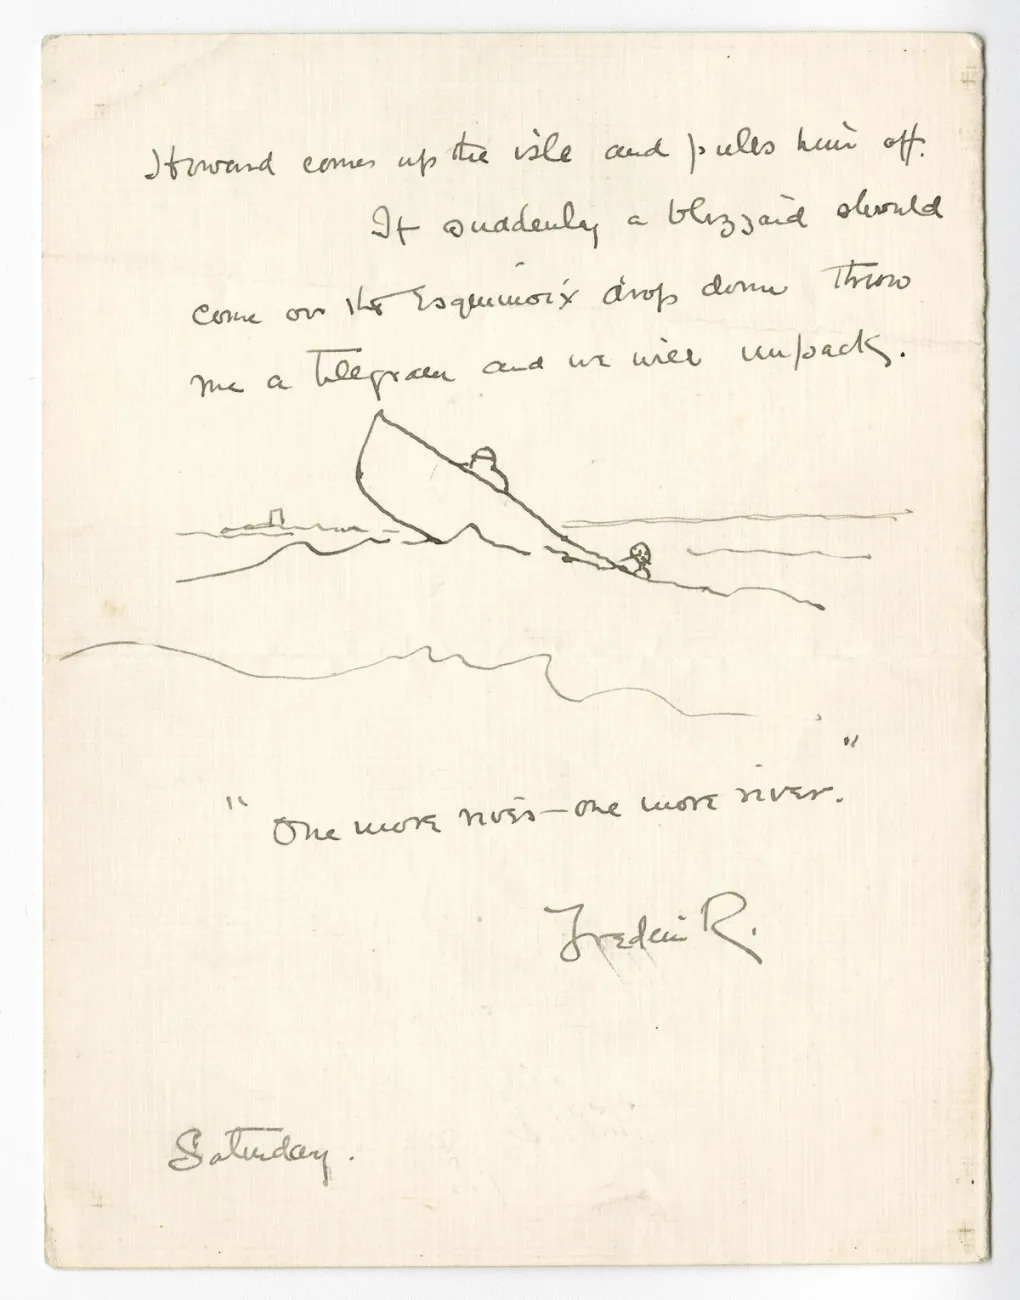 Howard comes up the isle and pules him off.
If suddenly a blizzard should
come on the Esquimoix drop down throw
me a Telegram and we will unpack.
"One more river—one more river."
Frederic R.
Saturday.